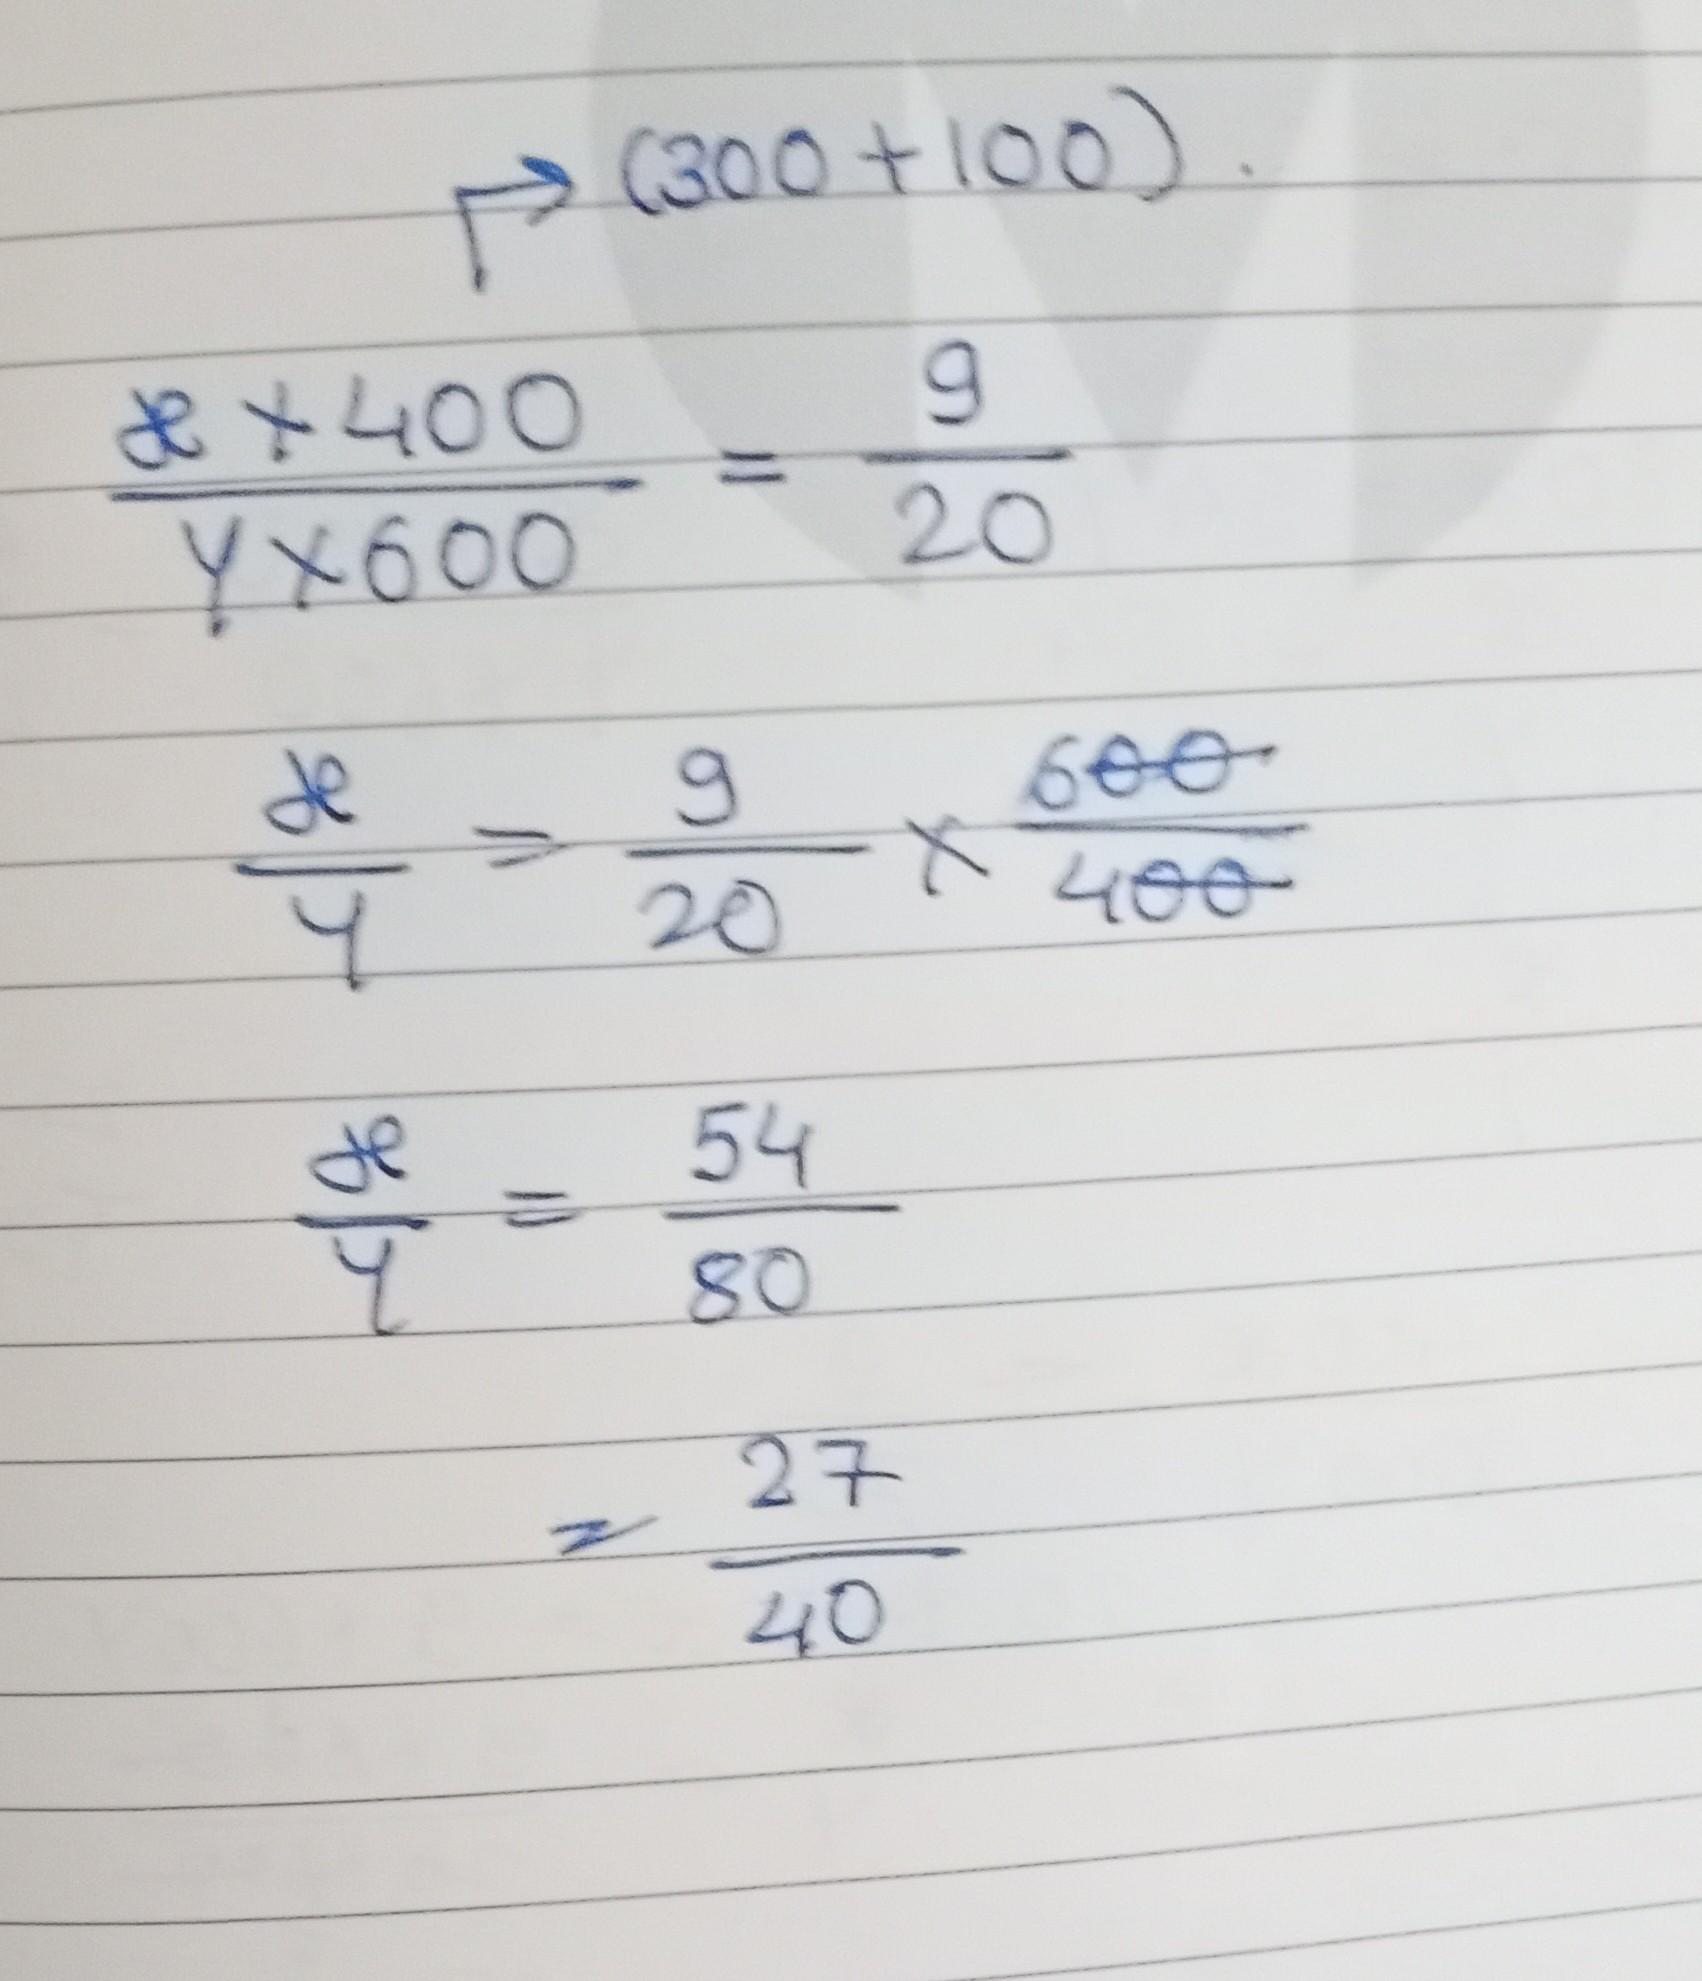 (300 + 100).
x × 400 / y × 600 = 9 / 20
x / y = 9 / 20 × 600 / 400
x / y = 54 / 80
= 27 / 40